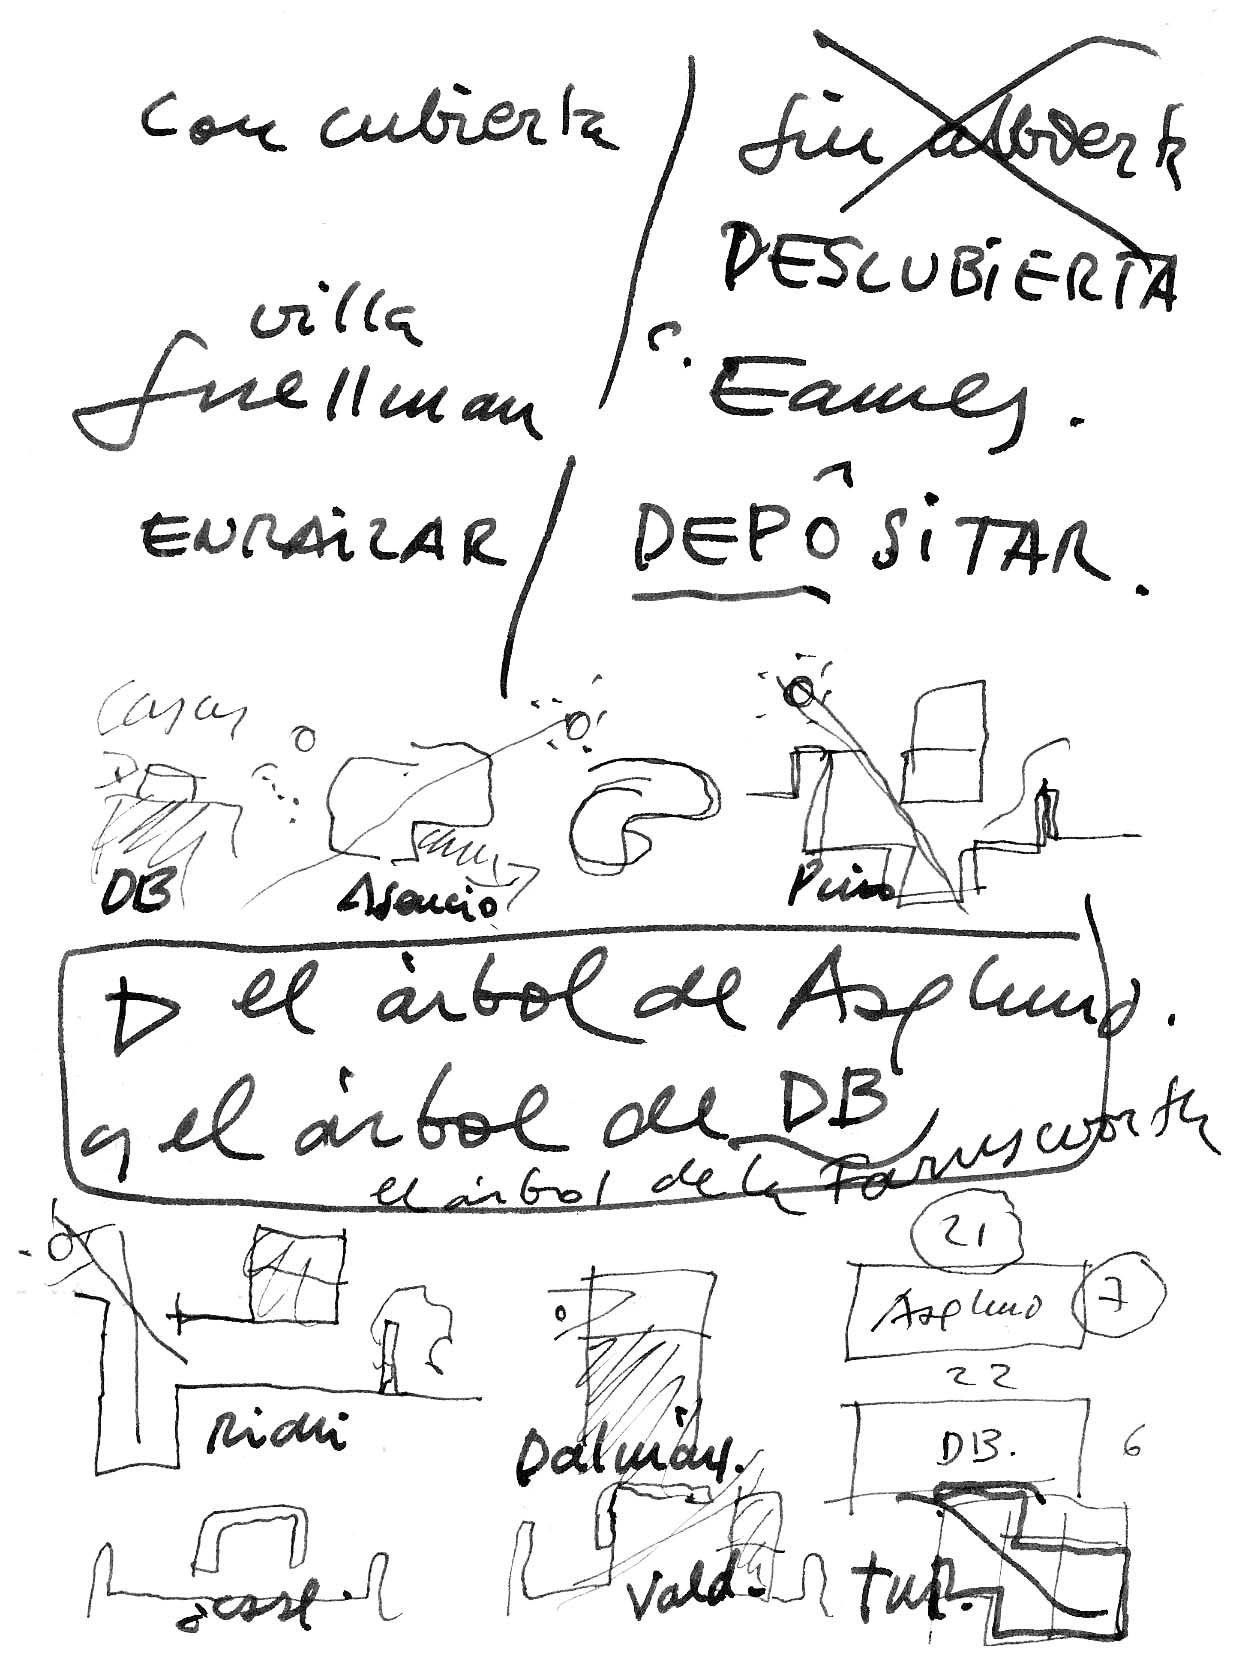 con cubierta / sin
DESCUBIERTA
villa
Snellman
c. Eames.
ENRAIZAR / DEPÔSITAR.
Casas
DB
DB Asencio Pino
el árbol de Asplund.
y el árbol de DB
el árbol de la Farnsworth
21
Asplund 7
22
DB. 6
Dalmáu.
Vald. tur.